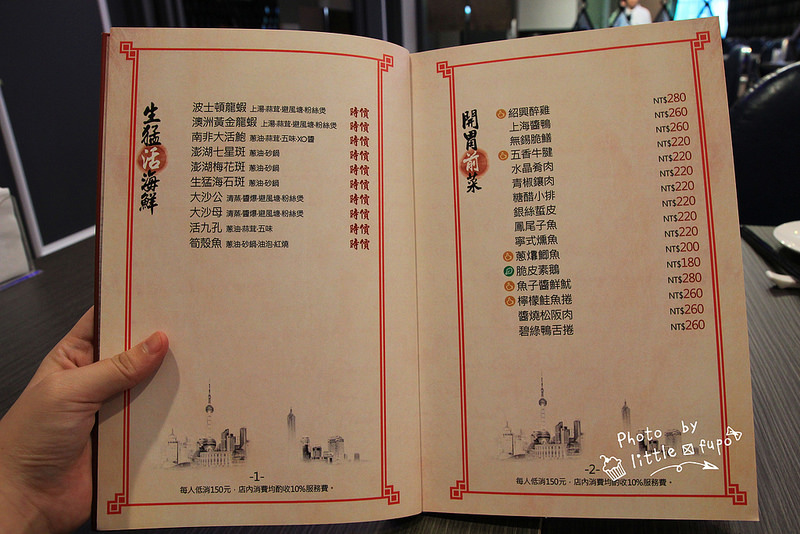 生猛活海鮮
波士頓龍蝦 上湯·蒜茸·避風塘·粉絲煲 時價
澳洲黃金龍蝦 上湯·蒜茸·避風塘·粉絲煲 時價
南非大活鮑 蔥油·蒜茸·五味·XO醬 時價
澎湖七星斑 蔥油·砂鍋 時價
澎湖梅花斑 蔥油·砂鍋 時價
生猛海石斑 蔥油·砂鍋 時價
大沙公 清蒸·醬爆·避風塘·粉絲煲 時價
大沙母 清蒸·醬爆·避風塘·粉絲煲 時價
活九孔 蔥油·蒜茸·五味 時價
筍殼魚 蔥油·砂鍋·油泡·紅燒 時價
-1-
每人低消150元，店內消費均酌收10%服務費。
開胃前菜
紹興醉雞 NT$280
上海醬鴨 NT$260
無錫脆鱔 NT$260
五香牛腱 NT$220
水晶肴肉 NT$220
青椒鑲肉 NT$220
糖醋小排 NT$220
銀絲蜇皮 NT$220
鳳尾子魚 NT$220
寧式燻魚 NT$220
蔥㸆鯽魚 NT$200
脆皮素鵝 NT$180
魚子醬鮮魷 NT$280
檸檬鮭魚捲 NT$260
醬燒松阪肉 NT$260
碧綠鴨舌捲 NT$260
-2-
每人低消150元，店內消費均酌收10%服務費。
Photo by
little fupo